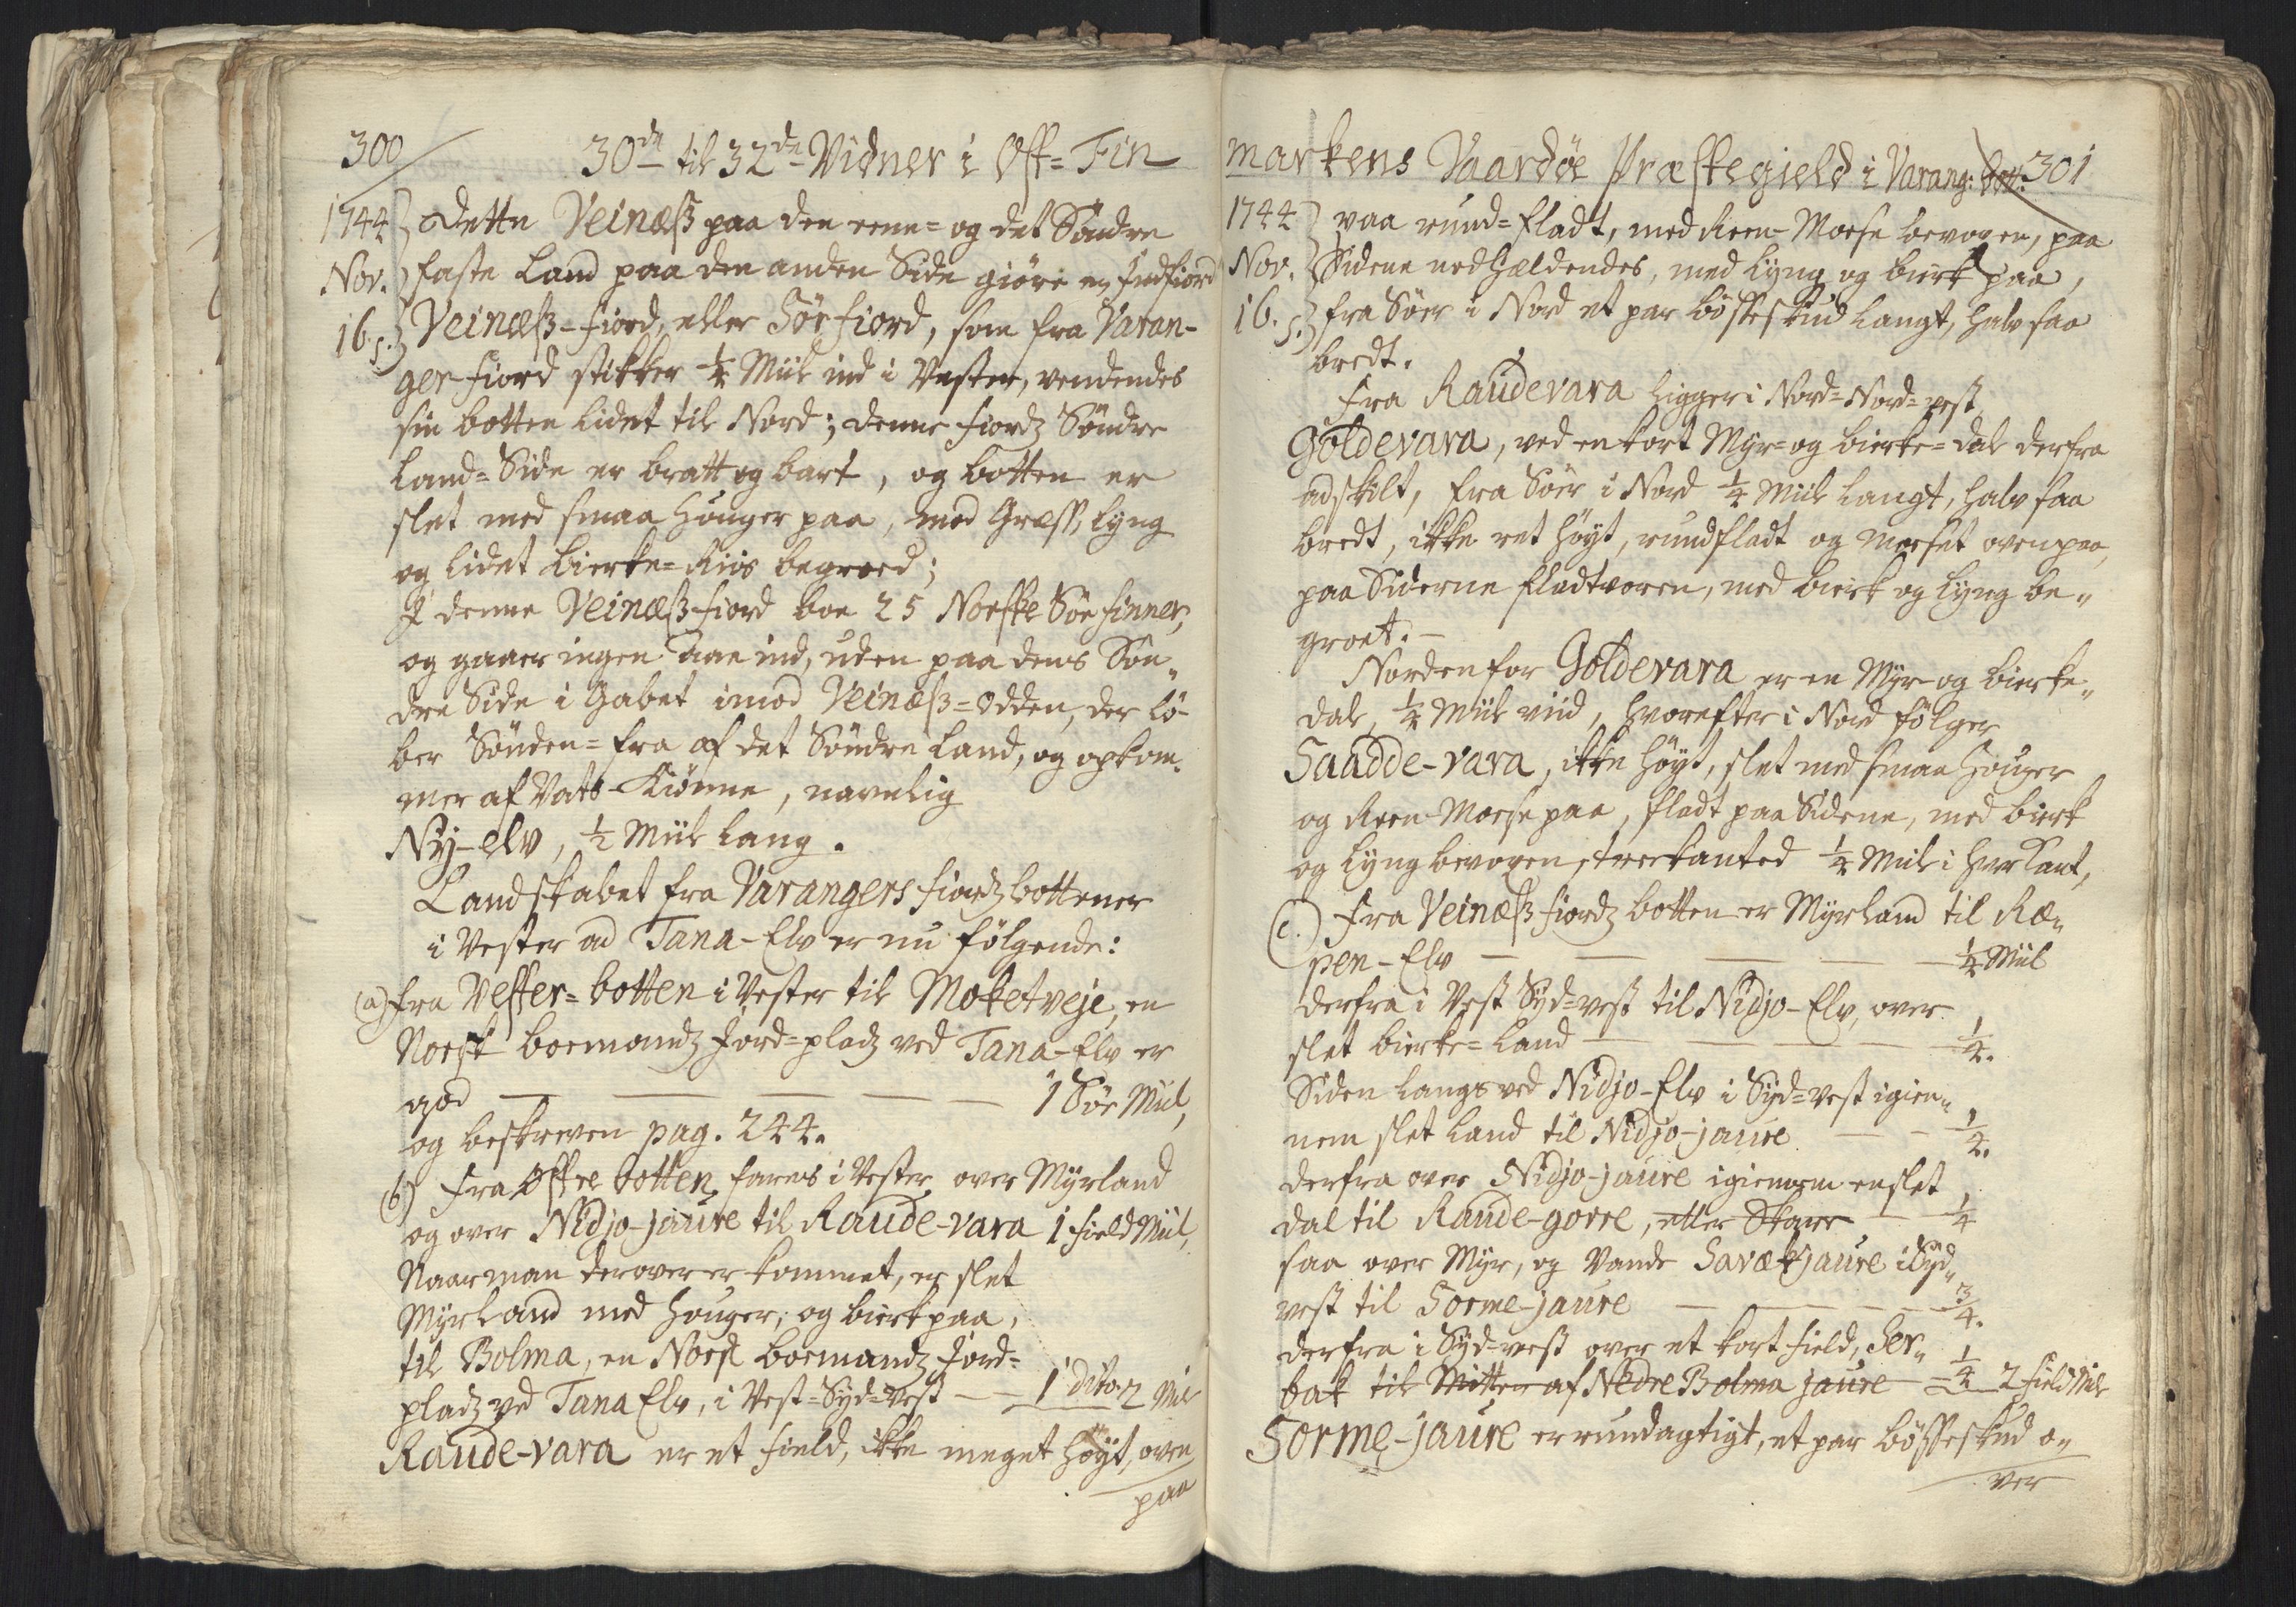 300
30de til 32de Vidner i Øst-Fin
1744
Nov.
16.
Dette Veinæss paa den eene- og det Søndre
faste Land paa den anden Side giøre en Indfiord
Veinæss-fiord, eller Sørfiord, som fra Varan-
ger-fiord stikker 1/4 Miil ind i Vester, vendendes
sin botten lidet til Nord; denne fiordz Søndre
Land-Side er bratt og bart, og botten er
slet med smaa Houger paa, med Græss, Lyng
og lidet bierke-Riis begroed;
I denne Veinæssfiord boe 25 Norske Søe finner,
og gaaer ingen Aae ind, uden paa dens Søn-
dre Side i Gabet imod Veinæss-Odden, der lø-
ber Sønden-fra af det Søndre Land, og opkom-
mer af Vats-Kiønne, navnlig
Ny-elv, 1/2 Miil lang.
Landskabet fra Varangers fiordz bottener
i Vester ad Tana-Elv er nu følgende:
(a) fra Vester-botten i Vester til Moketveje, en
Norsk boemandz Jord-pladz ved Tana-Elv er
god — — — — — 1 Søe Miil,
og beskreven pag. 244.
(b) Fra Østre botten fares i Vester over Myrland
og over Nidjo-jaure til Raude-vara 1 field Miil,
Naar man derover er kommet, er slet
Myrland med Houger, og bierk paa,
til Bolma, en Norsk boemandz Jord-
pladz ved Tana Elv, i Vest-Syd-Vest — — 1 dito. 2 Mil
Raude-vara er et field, ikke meget høyt, oven
paa
markens Vaardøe Præstegield i Varang: bott: 301
1744
Nov.
16.
paa rund-fladt, med Reen-Moese bevoxen, paa
Sidene nedhældendes, med Lyng og bierk paa,
fra Søer i Nord et par bøsseskud langt, halv saa
bredt.
Fra Raudevara ligger i Nord-Nord-vest
Goldevara, ved en kort Myr- og bierke-dal derfra
adskilt, fra Søer i Nord 1/4 Miil langt, halv saa
bredt, ikke ret høyt, rundfladt og moeset ovenpaa,
paa Siderne fladtvoren, med bierk og Lyng be-
groet.
Norden for Goldevara er en Myr- og bierke-
dal, 1/4 Miil viid, hvorefter i Nord følger
Saadde-vara, ikke høyt, slet med smaa Houger
og Reen-Moese paa, fladt paa Sidene, med bierk
og Lyng bevoxen, treekanted 1/4 Miil i hver Kant,
(c.) Fra Veinæss fiordz botten er Myrland til Ræ-
pen-Elv — — — — 1/4 Miil
derfra i Vest Syd-vest til Nidjo-Elv, over
slet bierke-Land — — — 1/4.
Siden langs ved Nidjo-Elv i Syd-vest igien-
nem slet Land til Nidjo-jaure — — 1/4.
derfra over Nidjo-jaure igiennem en slet
dal til Raude-gorre, eller Skarr — 1/4
saa over Myr, og Vande Savækjaure i Syd-
vest til Sorme-jaure — — — 3/4.
derfra i Syd-vest over et kort field, Ser-
bak til Mitten af Nedre Bolma jaure — 1/4 2 field Mile
Sorme-jaure er rundagtigt, et par bøsseskud o-
ver